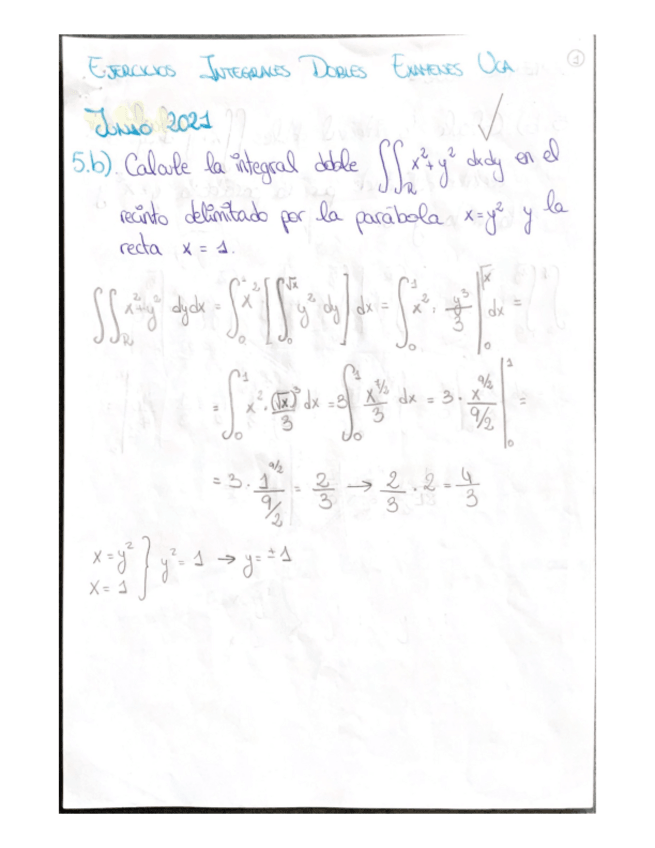 EJERCICIOS INTEGRALES DOBLES EXÁMENES UCA
1
JUNIO 2021
5.b). Calcule la integral doble ∬_R x²+y² dxdy en el
recinto delimitado por la parábola x=y² y la
recta x = 1.
∬_R x²+y² dydx = ∫₀¹ x² [∫₀^√x y² dy] dx = ∫₀¹ x² · y³/3 |₀^√x dx =
= ∫₀¹ x² · (√x)³/3 dx = 3∫₀¹ x^(7/2)/3 dx = 3 · x^(9/2)/(9/2) |₀¹ =
= 3 · 1^(9/2)/(9/2) = 2/3 → 2/3 · 2 = 4/3
x = y²
x = 1 } y² = 1 → y = ±1